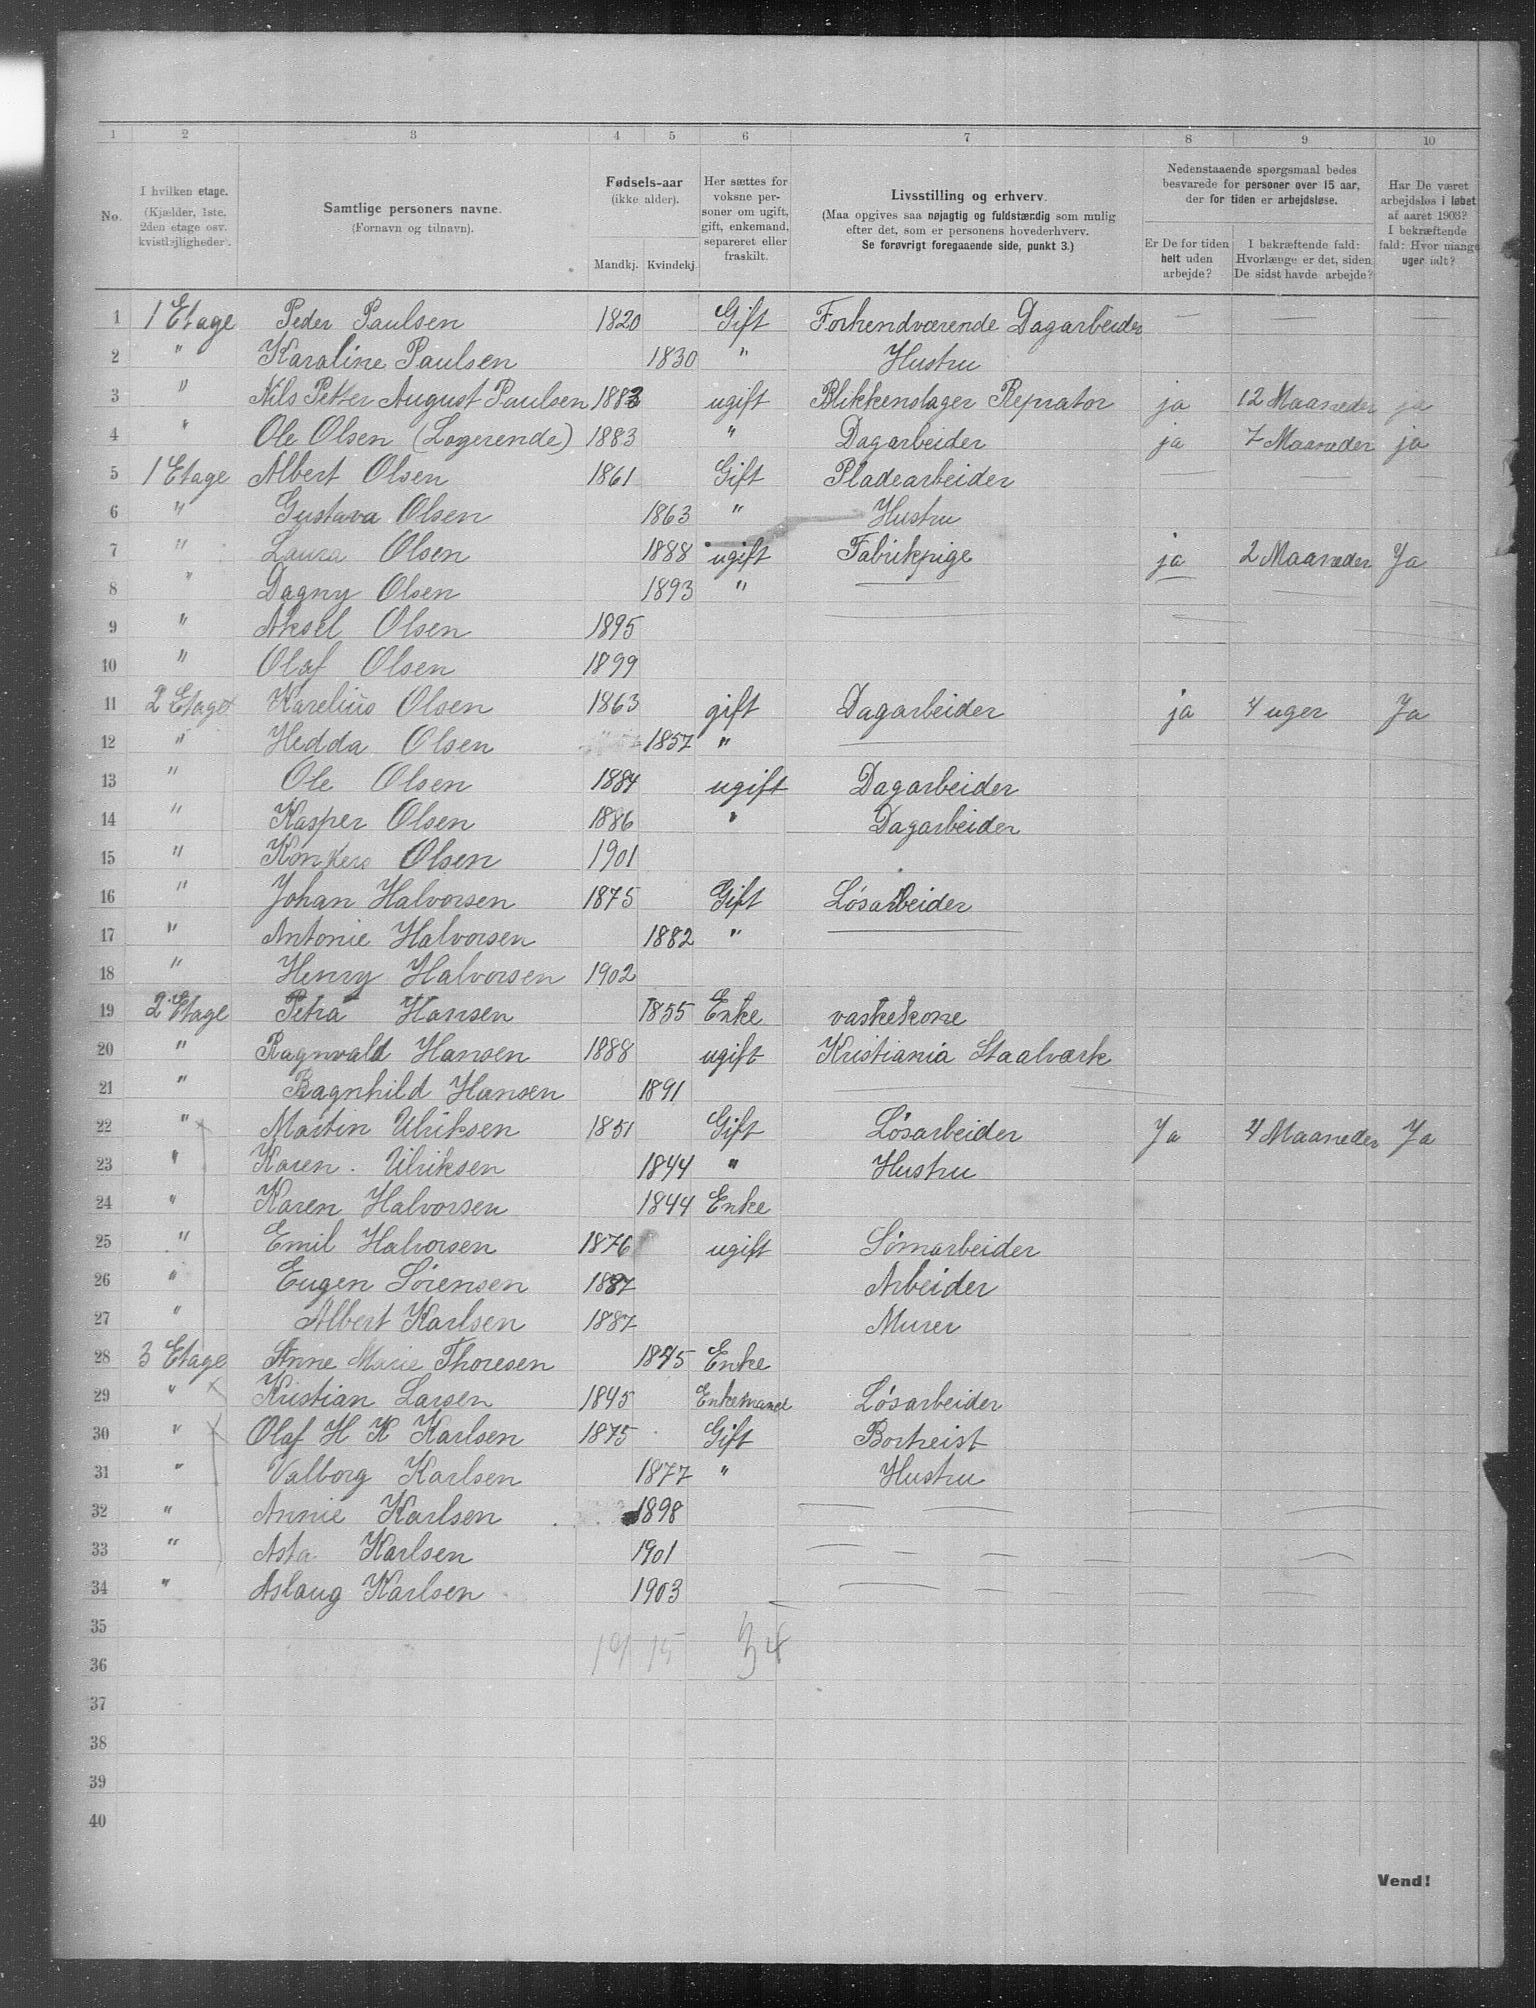 1 2 3 4 5 6 7 8 9 10
No.
I hvilken etage.
(Kjælder, 1ste,
2den etage osv.
kvistlejligheder).
Samtlige personers navne.
(Fornavn og tilnavn).
Fødsels-aar
(ikke alder).
Mandkj. Kvindekj.
Her sættes for
voksne per-
soner om ugift,
gift, enkemand,
separeret eller
fraskilt.
Livsstilling og erhverv.
(Maa opgives saa nøjagtig og fuldstændig som mulig
efter det, som er personens hovederhverv.
Se forøvrigt foregaaende side, punkt 3.)
Nedenstaaende spørgsmaal bedes
besvarede for personer over 15 aar,
der for tiden er arbejdsløse.
Er De for tiden
helt uden
arbejde?
I bekræftende fald:
Hvorlænge er det, siden
De sidst havde arbejde?
Har De været
arbejdsløs i løbet
af aaret 1903?
I bekræftende
fald: Hvor mange
uger ialt?
1 1 Etage Peder Paulsen 1820 Gift Forhendværende Dagarbeider — — —
2 " Karaline Paulsen 1830 " Hustru
3 " Nils Petter August Paulsen 1883 ugift Blikkenslager Reprator ja 12 Maaneder ja
4 " Ole Olsen (Logerende) 1883 " Dagarbeider ja 7 Maaneder ja
5 1 Etage Albert Olsen 1861 Gift Pladearbeider — — —
6 " Gustava Olsen 1863 " Hustru
7 " Laura Olsen 1888 ugift Fabrikpige ja 2 Maaneder Ja
8 " Dagny Olsen 1893 " —
9 " Aksel Olsen 1895
10 " Olaf Olsen 1899
11 2 Etage Karelius Olsen 1863 gift Dagarbeider ja 4 uger Ja
12 " Hedda Olsen 1857 " —
13 " Ole Olsen 1884 ugift Dagarbeider
14 " Kasper Olsen 1886 " Dagarbeider
15 " Olsen 1901
16 " Johan Halvorsen 1875 Gift Løsarbeider
17 " Antonie Halvorsen 1882 " —
18 " Henry Halvorsen 1902
19 2 Etage Petra Hansen 1855 Enke vaskekone
20 " Ragnvald Hansen 1888 ugift Kristiania Staalværk
21 " Ragnhild Hansen 1891
22 " Martin Ulriksen 1851 Gift Løsarbeider Ja 4 Maaneder Ja
23 " Karen Ulriksen 1844 " Hustru
24 " Karen Halvorsen 1844 Enke
25 " Emil Halvorsen 1876 ugift Sømarbeider
26 " Eugen Sørensen 1887 Arbeider
27 " Albert Karlsen 1887 Murer
28 3 Etage Anne Marie Thoresen 1845 Enke
29 " Kristian Larsen 1845 Enkemand Løsarbeider
30 " Olaf H K Karlsen 1875 Gift
31 " Valborg Karlsen 1877 " Hustru
32 " Annie Karlsen 1898 — — —
33 " Asta Karlsen 1901 — — —
34 " Aslaug Karlsen 1903 — — —
35
36 19 15 34
37
38
39
40
Vend!